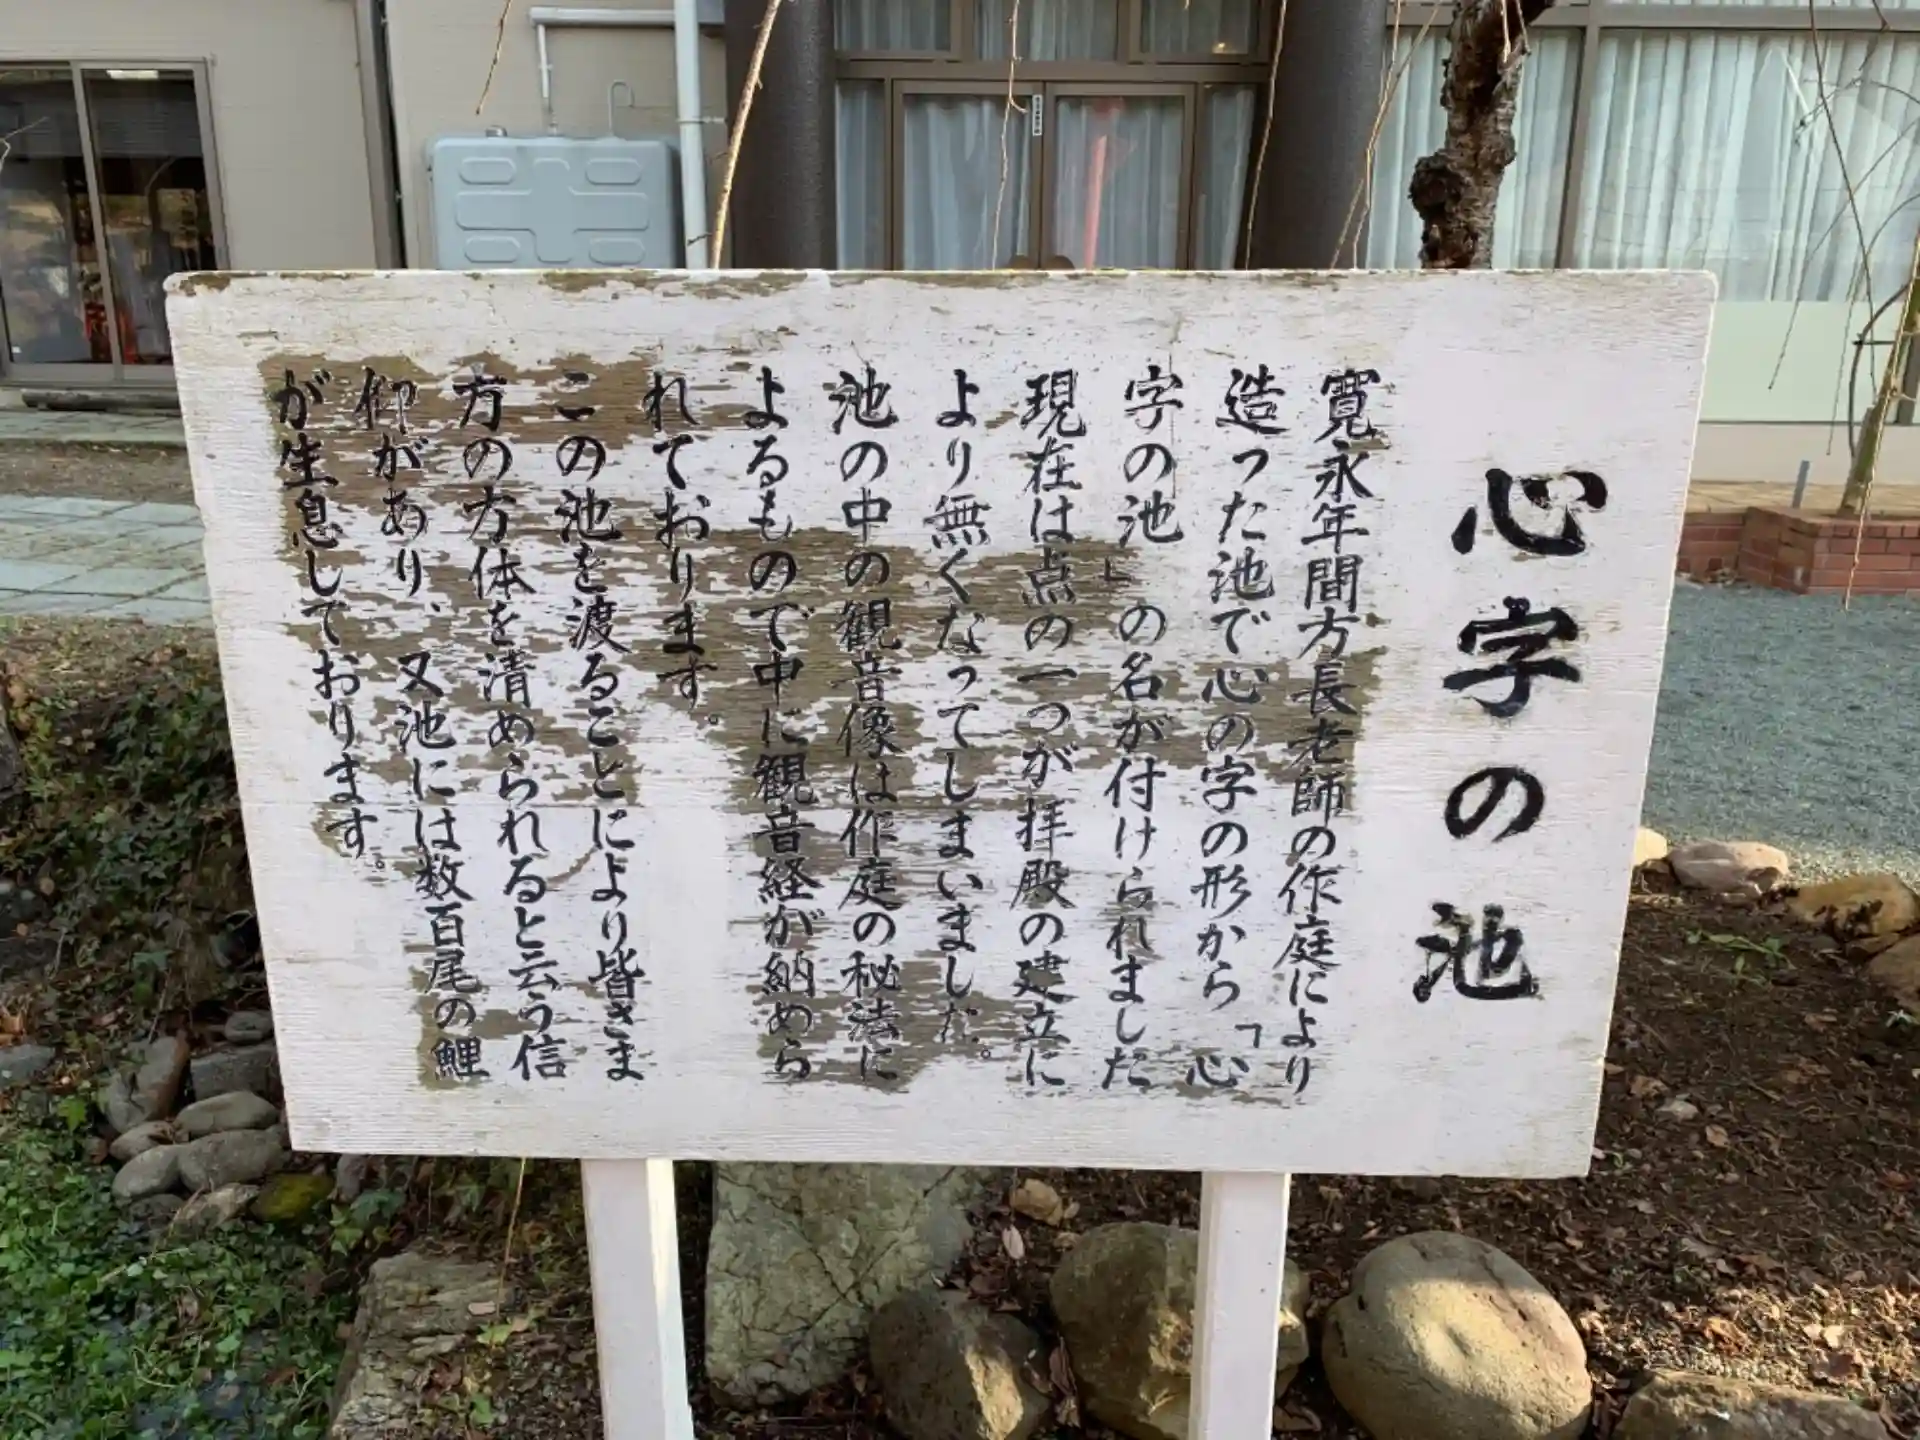 心字の池
寛永年間方長老師の作庭により
造った池で心の字の形から「心
字の池」の名が付けられました
現在は点の一つが拝殿の建立に
より無くなってしまいました。
池の中の観音像は作庭の秘法に
よるもので中に観音経が納めら
れております。
この池を渡ることにより皆さま
方の方体を清められると云う信
仰があり、又池には数百尾の鯉
が生息しております。